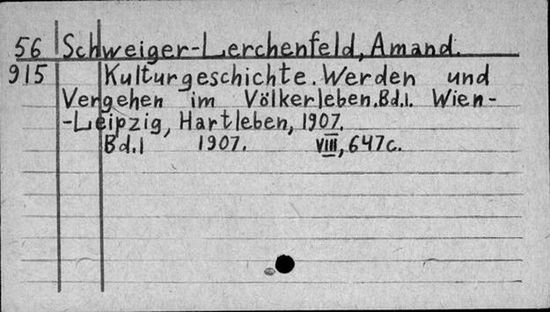 56 Schweiger-Lerchenfeld, Amand.
915 Kulturgeschichte. Werden und
Vergehen im Völkerleben. Bd.1. Wien-
-Leipzig, Hartleben, 1907.
Bd.1 1907. VIII, 647c.